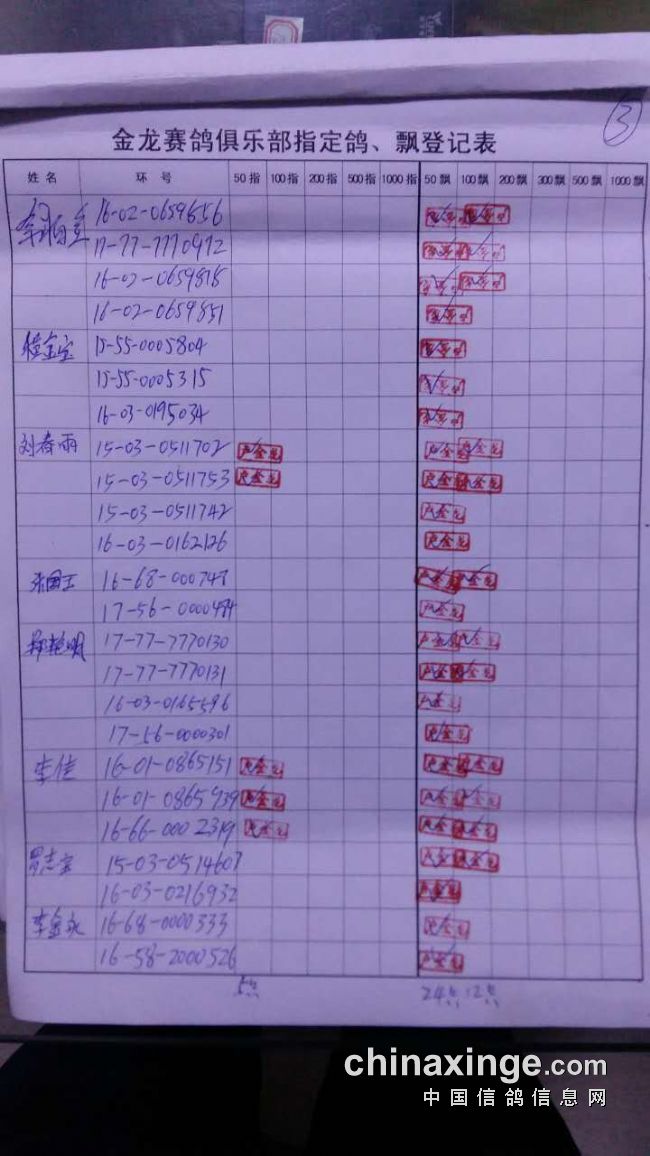 3
金龙赛鸽俱乐部指定鸽、飘登记表
姓名 环号 50指 100指 200指 500指 1000指 50飘 100飘 200飘 300飘 500飘 1000飘
16-02-0659656
17-77-7770972
16-02-0659818
16-02-0659851
15-55-0005804
15-55-0005315
16-03-0195034
刘春雨 15-03-0511702 卢金龙 卢金龙 卢金龙
15-03-0511753 卢金龙 卢金龙 卢金龙
15-03-0511742 卢金龙
16-03-0162126 卢金龙
张国卫 16-68-000747 卢金龙 卢金龙
17-56-0000484 卢金龙
郭艳明 17-77-7770130 卢金龙 卢金龙
17-77-7770131 卢金龙 卢金龙
16-03-0165596 卢金龙
17-56-0000301 卢金龙
李佳 16-01-0865151 卢金龙 卢金龙 卢金龙
16-01-0865939 卢金龙 卢金龙 卢金龙
16-66-0002319 卢金龙 卢金龙 卢金龙
15-03-0514607 卢金龙 卢金龙
16-03-0216932 卢金龙
李金永 16-68-0000333 卢金龙
16-58-2000526 卢金龙
5点 24点 12点
chinaxinge.com
中国信鸽信息网